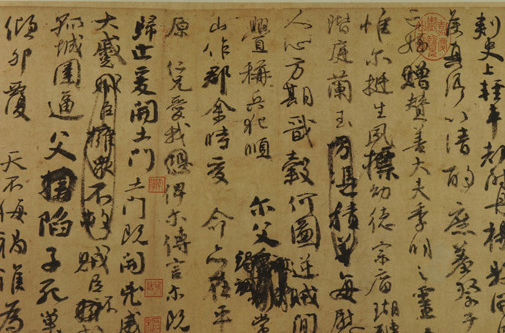 刺史上輕車都尉丹楊縣開
侯真卿以清酌庶羞祭于
亡姪贈贊善大夫季明之靈
惟爾挺生夙標幼德宗廟瑚
階庭蘭玉方憑積善每慰
人心方期戩穀何圖逆賊間
釁稱兵犯順爾父常
山作郡余時受命亦在平
原仁兄愛我俾爾傳言爾既
歸止爰開土門土門既開凶威
大蹙賊臣擁眾不救賊臣不
孤城圍逼父陷子死巢
傾卵覆天不悔禍誰為